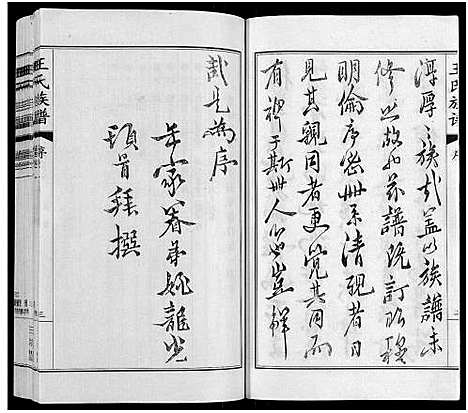 王氏族譜
淳厚之族哉蓋以族譜未
修之故如茲譜既訂昭穆
明倫序定世系清親者日
見其親同者更覺其同而
有裨于斯世人心豈鮮
哉是為序
年家眷弟姚龍光
頓首拜撰
王氏族譜
序